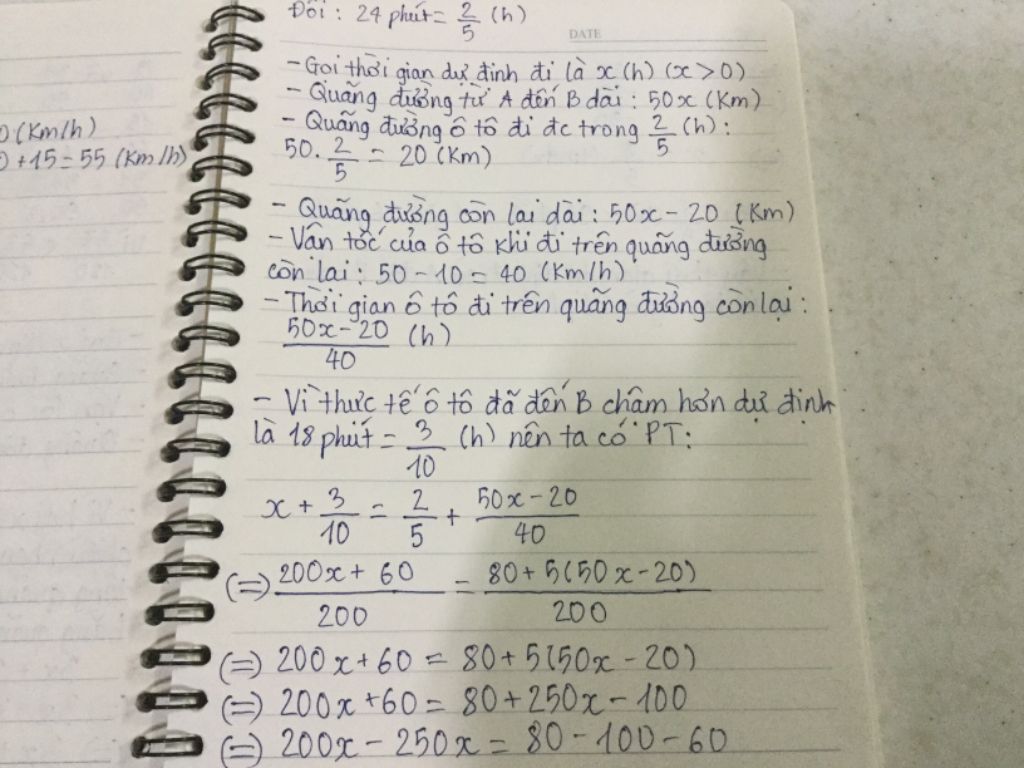 Đổi : 24 phút = 2/5 (h)
DATE
- Gọi thời gian dự định đi là x (h) (x > 0)
- Quãng đường từ A đến B dài : 50x (Km)
- Quãng đường ô tô đi đc trong 2/5 (h) :
50. 2/5 = 20 (Km)
- Quãng đường còn lại dài : 50x - 20 (Km)
- Vận tốc của ô tô khi đi trên quãng đường
còn lại : 50 - 10 = 40 (Km/h)
- Thời gian ô tô đi trên quãng đường còn lại :
50x - 20/40 (h)
- Vì thực tế ô tô đã đến B chậm hơn dự định
là 18 phút = 3/10 (h) nên ta có PT :
x + 3/10 = 2/5 + 50x - 20/40
(=) 200x + 60/200 = 80 + 5(50x - 20)/200
(=) 200x + 60 = 80 + 5(50x - 20)
(=) 200x + 60 = 80 + 250x - 100
(=) 200x - 250x = 80 - 100 - 60
0 (Km/h)
0 + 15 = 55 (Km/h)